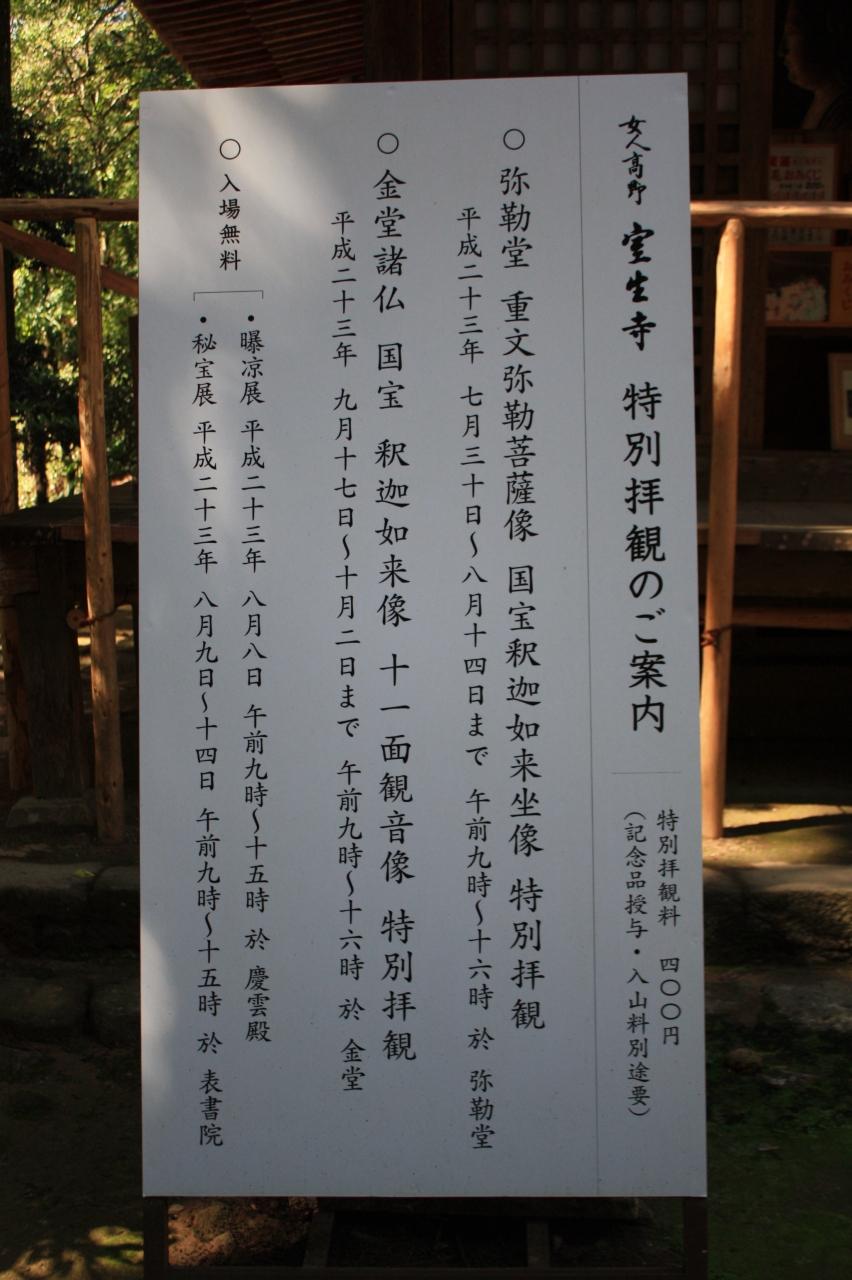 女人高野 室生寺 特別拝観のご案内
特別拝観料 四〇〇円
（記念品授与・入山料別途要）
○ 弥勒堂 重文弥勒菩薩像 国宝釈迦如来坐像 特別拝観
平成二十三年 七月三十日〜八月十四日まで 午前九時〜十六時 於 弥勒堂
○ 金堂諸仏 国宝 釈迦如来像 十一面観音像 特別拝観
平成二十三年 九月十七日〜十月二日まで 午前九時〜十六時 於 金堂
○ 入場無料
・曝凉展 平成二十三年 八月八日 午前九時〜十五時 於 慶雲殿
・秘宝展 平成二十三年 八月九日〜十四日 午前九時〜十五時 於 表書院